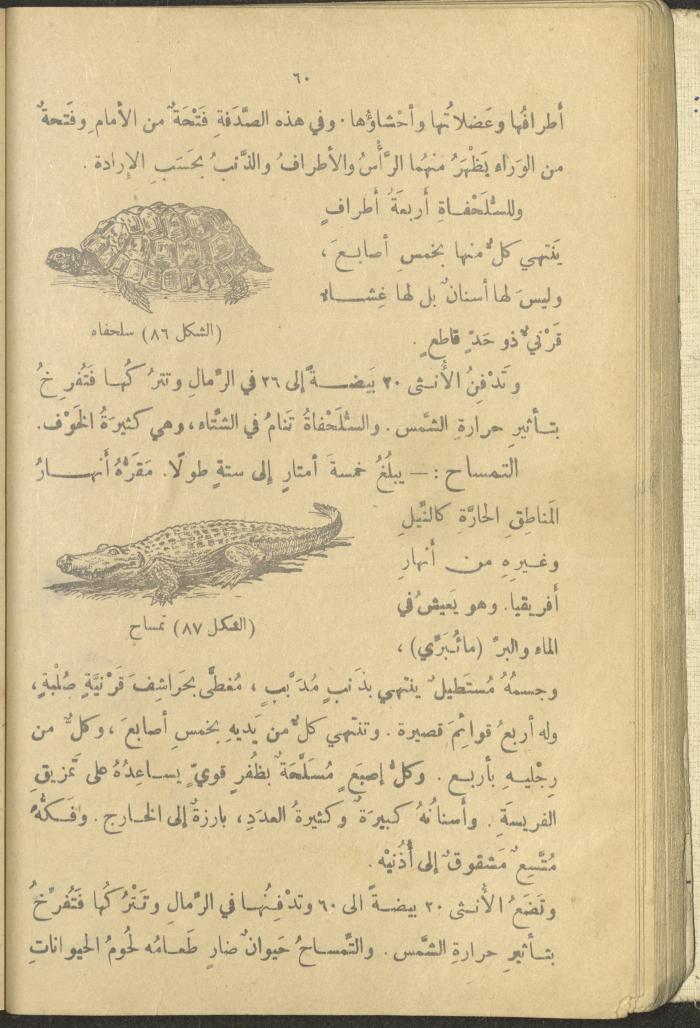 ٦٠
أطرافُها وعَضلاتُها وأحْشاؤُها. وفي هذه الصَّدَفةِ فَتْحَةٌ من الأمامِ وفَتحةٌ
من الوَراءِ يَظْهَرُ منهُما الرَّأْسُ والأطرافُ والذَّنبُ بحَسَبِ الإرادة.
وللسُّلَحْفاةِ أَربعَةُ أطرافٍ
يَنتهي كلٌّ منها بخمسِ أصابعَ،
وليسَ لها أسنانٌ بل لها غِشاء
قَرْنيٌّ ذو حَدٍّ قاطعٍ.
(الشكل ٨٦) سلحفاه
وتَدْفِنُ الأُنثى ٢٠ بَيضةً إلى ٢٦ في الرّمالِ وتترُكُها فَتُفرِخُ
بتأثيرِ حرارةِ الشَّمس. والسُّلَحْفاةُ تَنامُ في الشّتاء، وهي كثيرَةُ الخَوْف.
التمساح: — يبلُغُ خمسةَ أمتارٍ إلى ستةٍ طولًا. مَقَرُّهُ أَنهارُ
المَناطِقِ الحارَّةِ كالنّيلِ
وغيرِهِ من أَنهارِ
أَفريقيا. وهو يَعيشُ في
الماء والبرّ (مائُبَرّي)،
(الشكل ٨٧) تمساح
وجسمُهُ مُستَطيلٌ ينتهي بذَنبٍ مُدَبَّبٍ، مُغطًّى بحَراشِفَ قَرْنيَّةٍ صُلْبةٍ،
وله أربعُ قوائمَ قصيرة. وتنتهي كلٌّ من يَديهِ بخمسِ أصابعَ، وكلٌّ من
رِجْليهِ بأربعٍ. وكلُّ إصبَعٍ مُسَلَّحَةٌ بظُفرٍ قويٍّ يساعِدُهُ على تَمزيقِ
الفريسَةِ. وأسنانُهُ كبيرَةٌ وكثيرةُ العدَدِ، بارزةٌ إلى الخارج. وفَكُّهُ
مُتَّسِعٌ مَشقوقٌ إلى أُذُنَيْه.
وتَضَعُ الأُنثى ٢٠ بيضةً الى ٦٠ وتدْفِنُها في الرّمالِ وتَتْرُكُها فَتُفرِخُ
بتأثيرِ حرارةِ الشَّمس. والتّمساحُ حَيوانٌ ضارٍ طَعامُه لُحُومُ الحيواناتِ